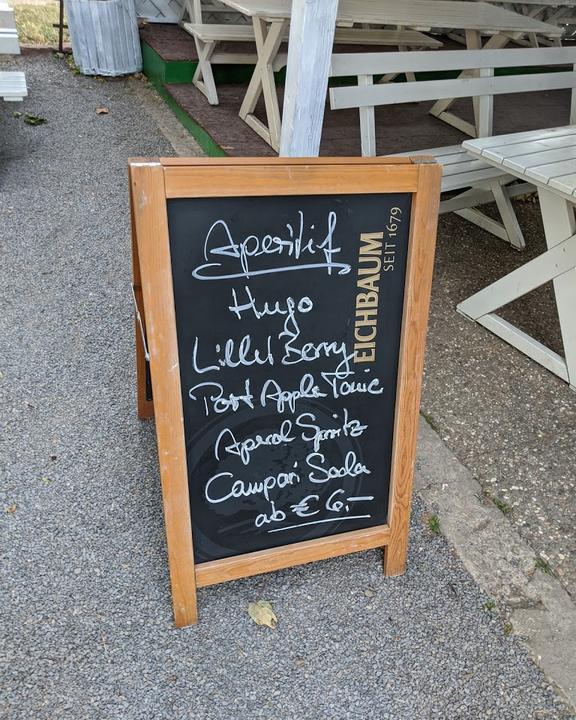 Aperitif
Hugo
Lillet Berry
Port Apple Tonic
Aperol Spritz
Campari Soda
ab € 6,-
EICHBAUM
SEIT 1679